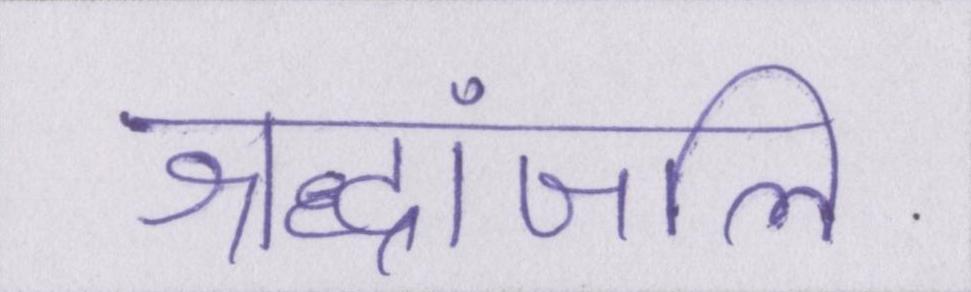 श्रद्धांजलि.